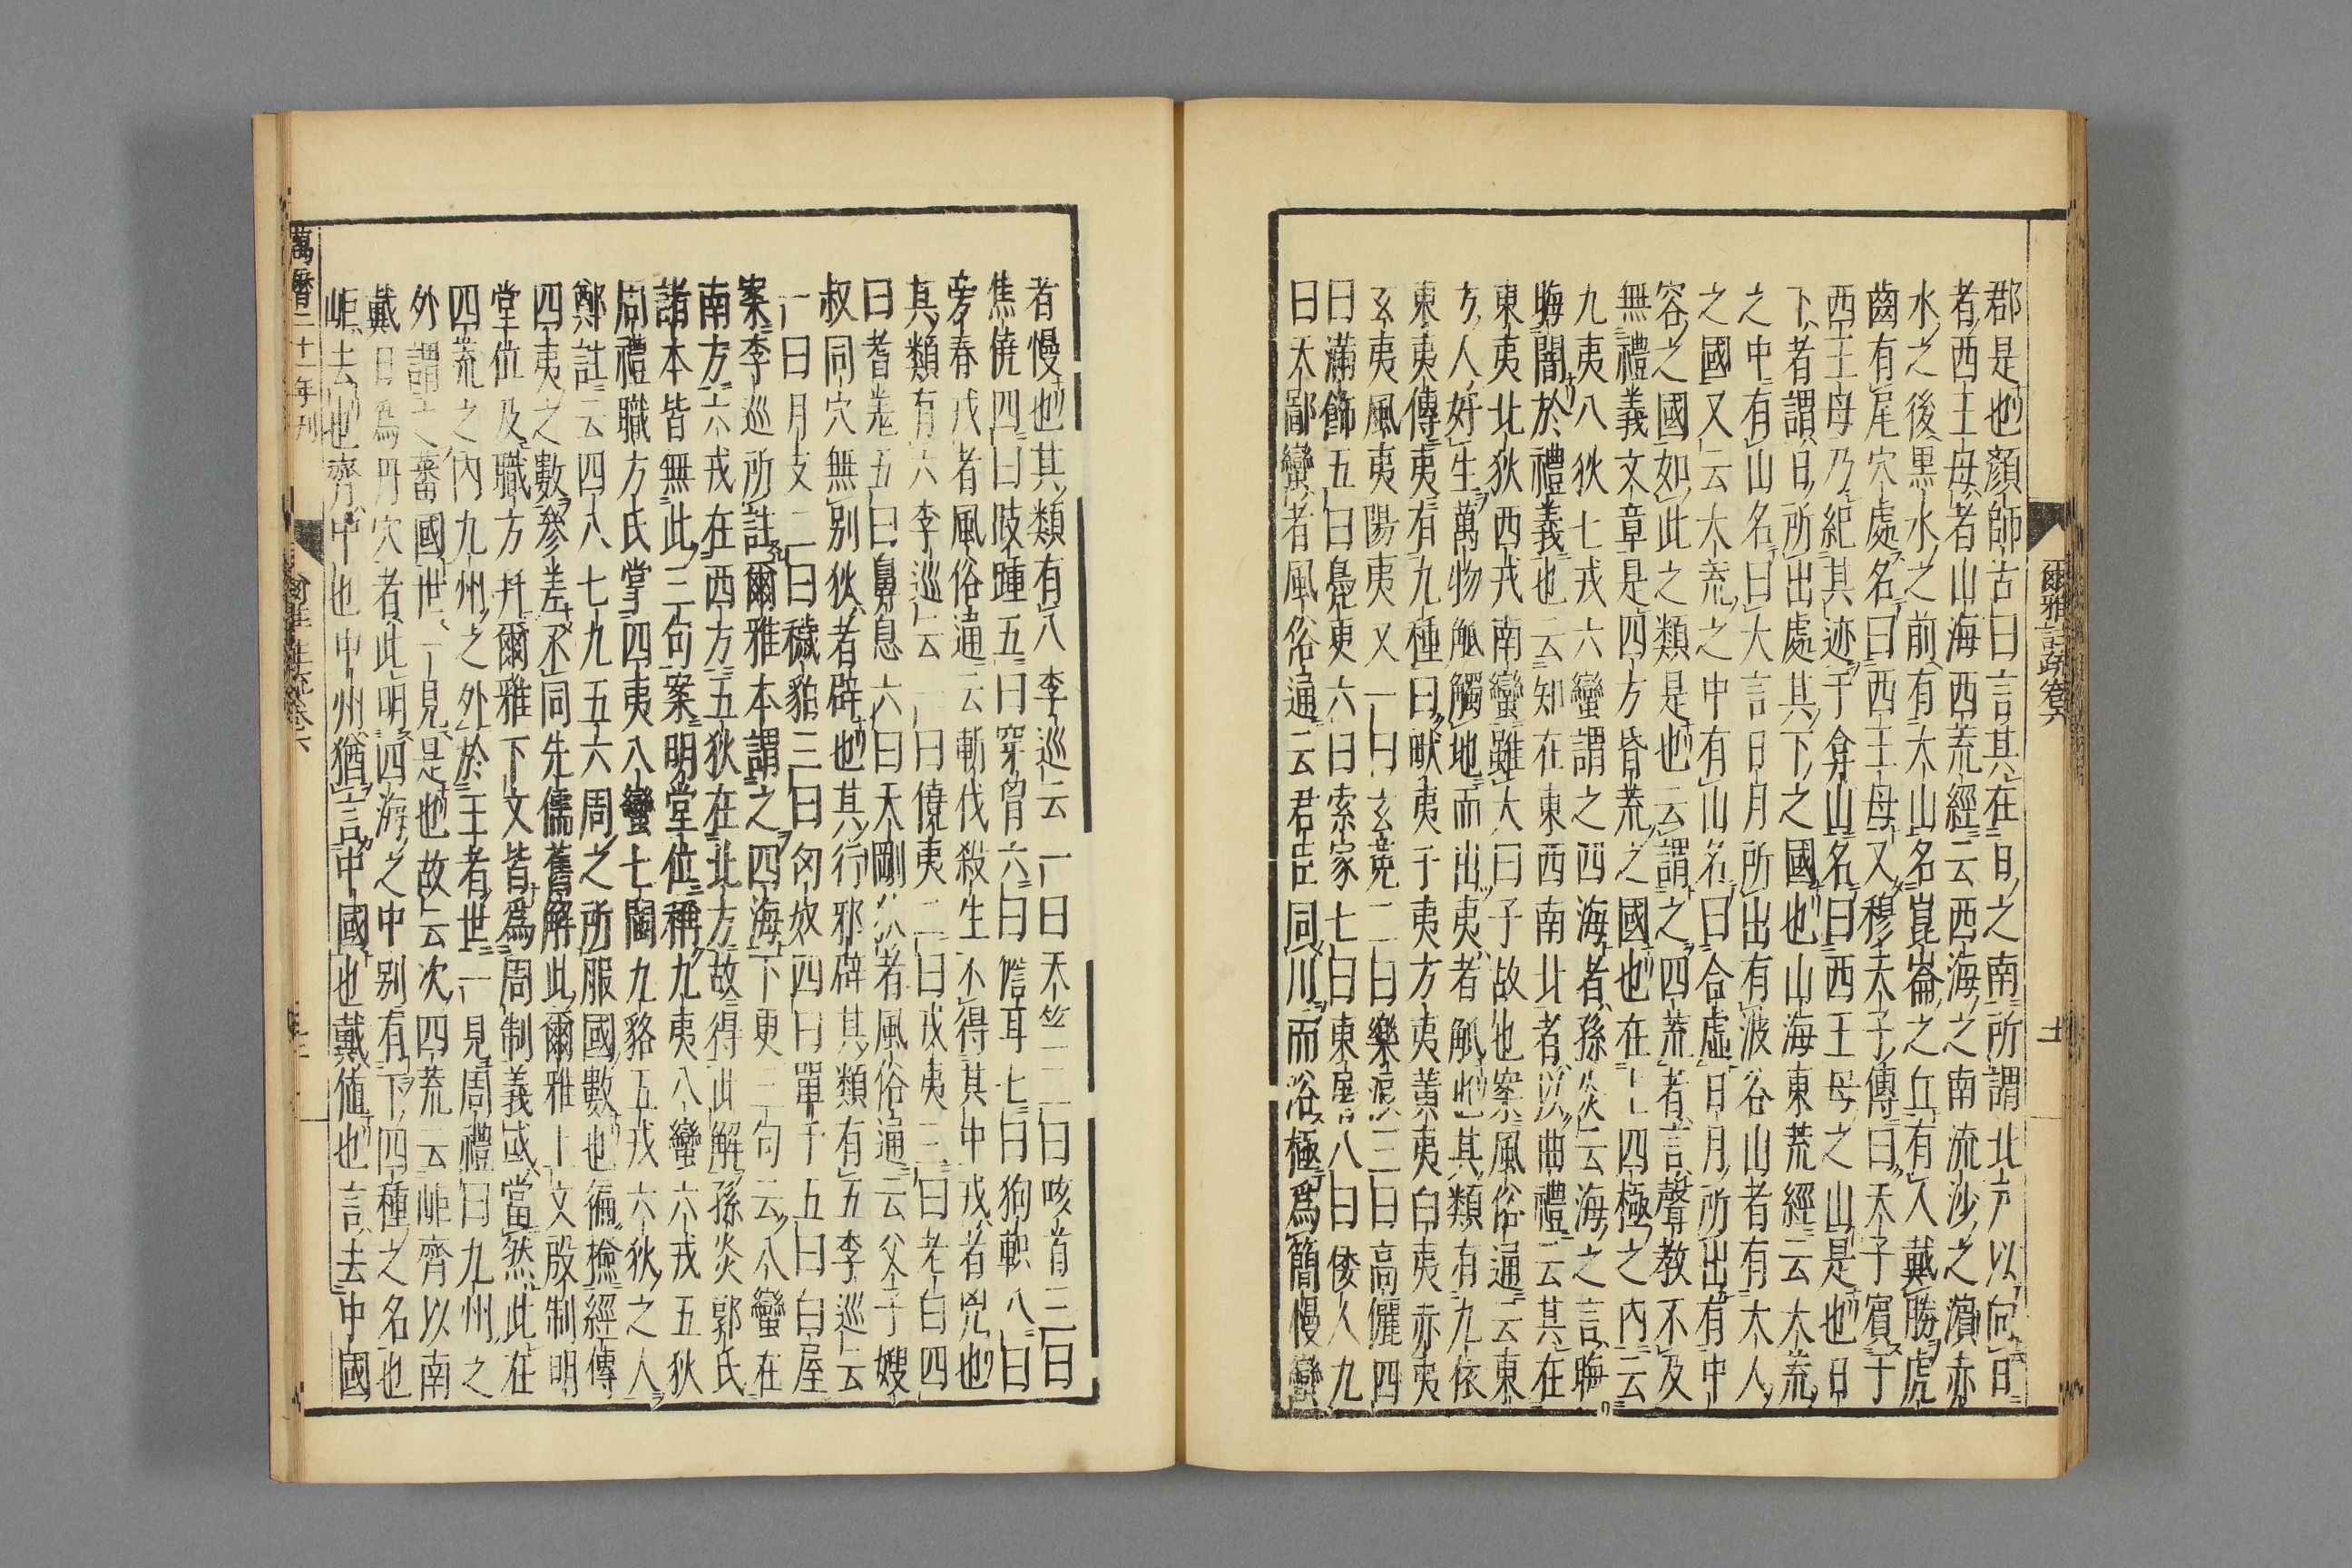 爾雅註疏卷六
十一
郡是也顏師古曰言其在日之南所謂北戸以向日
者西王母者山海西荒經云西海之南流沙之濱赤
水之後黑水之前有大山名崑崙之丘有人戴勝虎
齒有尾穴處名曰西王母又穆天子傳曰天子賓于
西王母乃紀其迹于弇山名曰西王母之山是也日
下者謂日所出處其下之國也山海東荒經云大荒
之中有山名曰大言日月所出有波谷山者有大人
之國又云大荒之中有山名曰合虛日月所出有中
容之國如此之類是也云謂之四荒者言聲教不及
無禮義文章是四方昏荒之國也在上四極之內云
九夷八狄七戎六蠻謂之四海者孫炎云海之言晦
晦闇於禮義也云知在東西南北者以曲禮云其在
東夷北狄西戎南蠻雖大曰子故也案風俗通云東
方人好生萬物觝觸地而出夷者觝也其類有九依
東夷傳夷有九種曰畎夷于夷方夷黃夷白夷赤夷
玄夷風夷陽夷又一曰玄菟二曰樂浪三曰高儷四
曰滿飾五曰鳧更六曰索家七曰東屠八曰倭人九
曰天鄙蠻者風俗通云君臣同川而浴極爲簡慢蠻
者慢也其類有八李巡云一曰天竺二曰咳首三曰
焦僥四曰跂踵五曰穿胷六曰儋耳七曰狗軹八曰
旁春戎者風俗通云斬伐殺生不得其中戎者兇也
其類有六李巡云一曰僥夷二曰戎夷三曰老白四
曰耆羌五曰鼻息六曰天剛狄者風俗通云父子嫂
叔同穴無別狄者辟也其行邪辟其類有五李巡云
一曰月支二曰穢貊三曰匈奴四曰單于五曰白屋
案李巡所註爾雅本謂之四海下更三句云八蠻在
南方六戎在西方五狄在北方故得此解孫炎郭氏
諸本皆無此三句案明堂位稱九夷八蠻六戎五狄
周禮職方氏掌四夷八蠻七閩九貉五戎六狄之人
鄭註云四八七九五六周之所服國數也徧撿經傳
四夷之數參差不同先儒舊解此爾雅上文殷制明
堂位及職方幷爾雅下文皆爲周制義或當然此在
四荒之內九州之外於王者世一見周禮曰九州之
外謂之蕃國世一見是也故云次四荒云岠齊以南
戴日爲丹穴者此明四海之中別有下四種之名也
岠去也齊中也中州猶言中國也戴值也言去中國
萬曆二十一年刊
爾雅註疏卷六